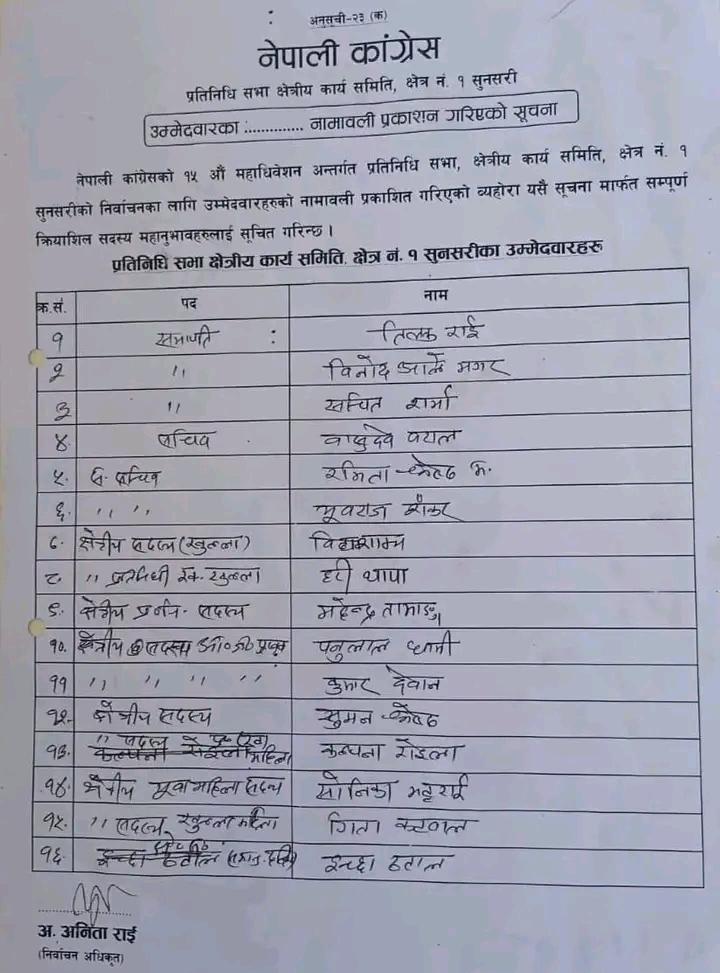 अनुसूची-२३ (क)
नेपाली कांग्रेस
प्रतिनिधि सभा क्षेत्रीय कार्य समिति, क्षेत्र नं. १ सुनसरी
उम्मेदवारका :.............. नामावली प्रकाशन गरिएको सूचना
नेपाली कांग्रेसको १५ औं महाधिवेशन अन्तर्गत प्रतिनिधि सभा, क्षेत्रीय कार्य समिति, क्षेत्र नं. १
सुनसरीको निर्वाचनका लागि उम्मेदवारहरुको नामावली प्रकाशित गरिएको व्यहोरा यसै सूचना मार्फत सम्पूर्ण
क्रियाशिल सदस्य महानुभावहरुलाई सूचित गरिन्छ ।
प्रतिनिधि सभा क्षेत्रीय कार्य समिति, क्षेत्र नं. १ सुनसरीका उम्मेदवारहरु
क्र.सं. पद नाम
१ सभापति : तिलक राई
२ ,, विनोद आले मगर
३ ,, सचित शर्मा
४ सचिव वासुदेव
५. स. सचिव रमिता श्रेष्ठ
६. ,, ,, ,, युवराज
७. क्षेत्रीय सदस्य (खुल्ला)
८. ,, खुल्ला हरी थापा
९. क्षेत्रीय सदस्य महेन्द्र तामाङ्ग
१०. क्षेत्रीय सदस्य धामी
११ ,, ,, ,, ,, कुमार देवान
१२. क्षेत्रीय सदस्य सुमन श्रेष्ठ
१३. ,, सदस्य महिला कल्पना रोइला
१४. क्षेत्रीय युवा महिला सदस्य सोनिका भट्टराई
१५. ,, सदस्य खुल्ला महिला गिता
१६. इच्छा
अ. अनिता राई
(निर्वाचन अधिकृत)